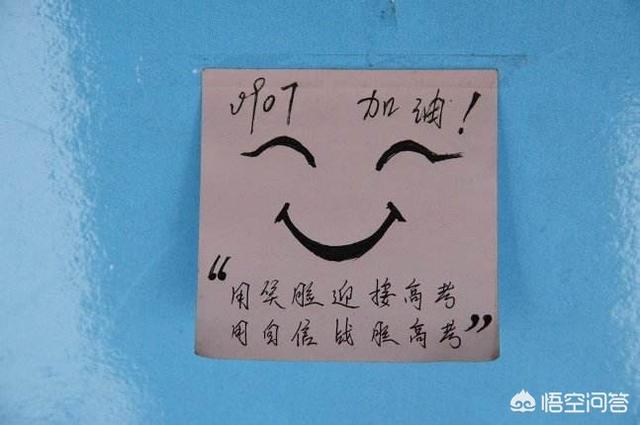 907 加油！
“用笑脸迎接高考
用自信战胜高考”
悟空问答